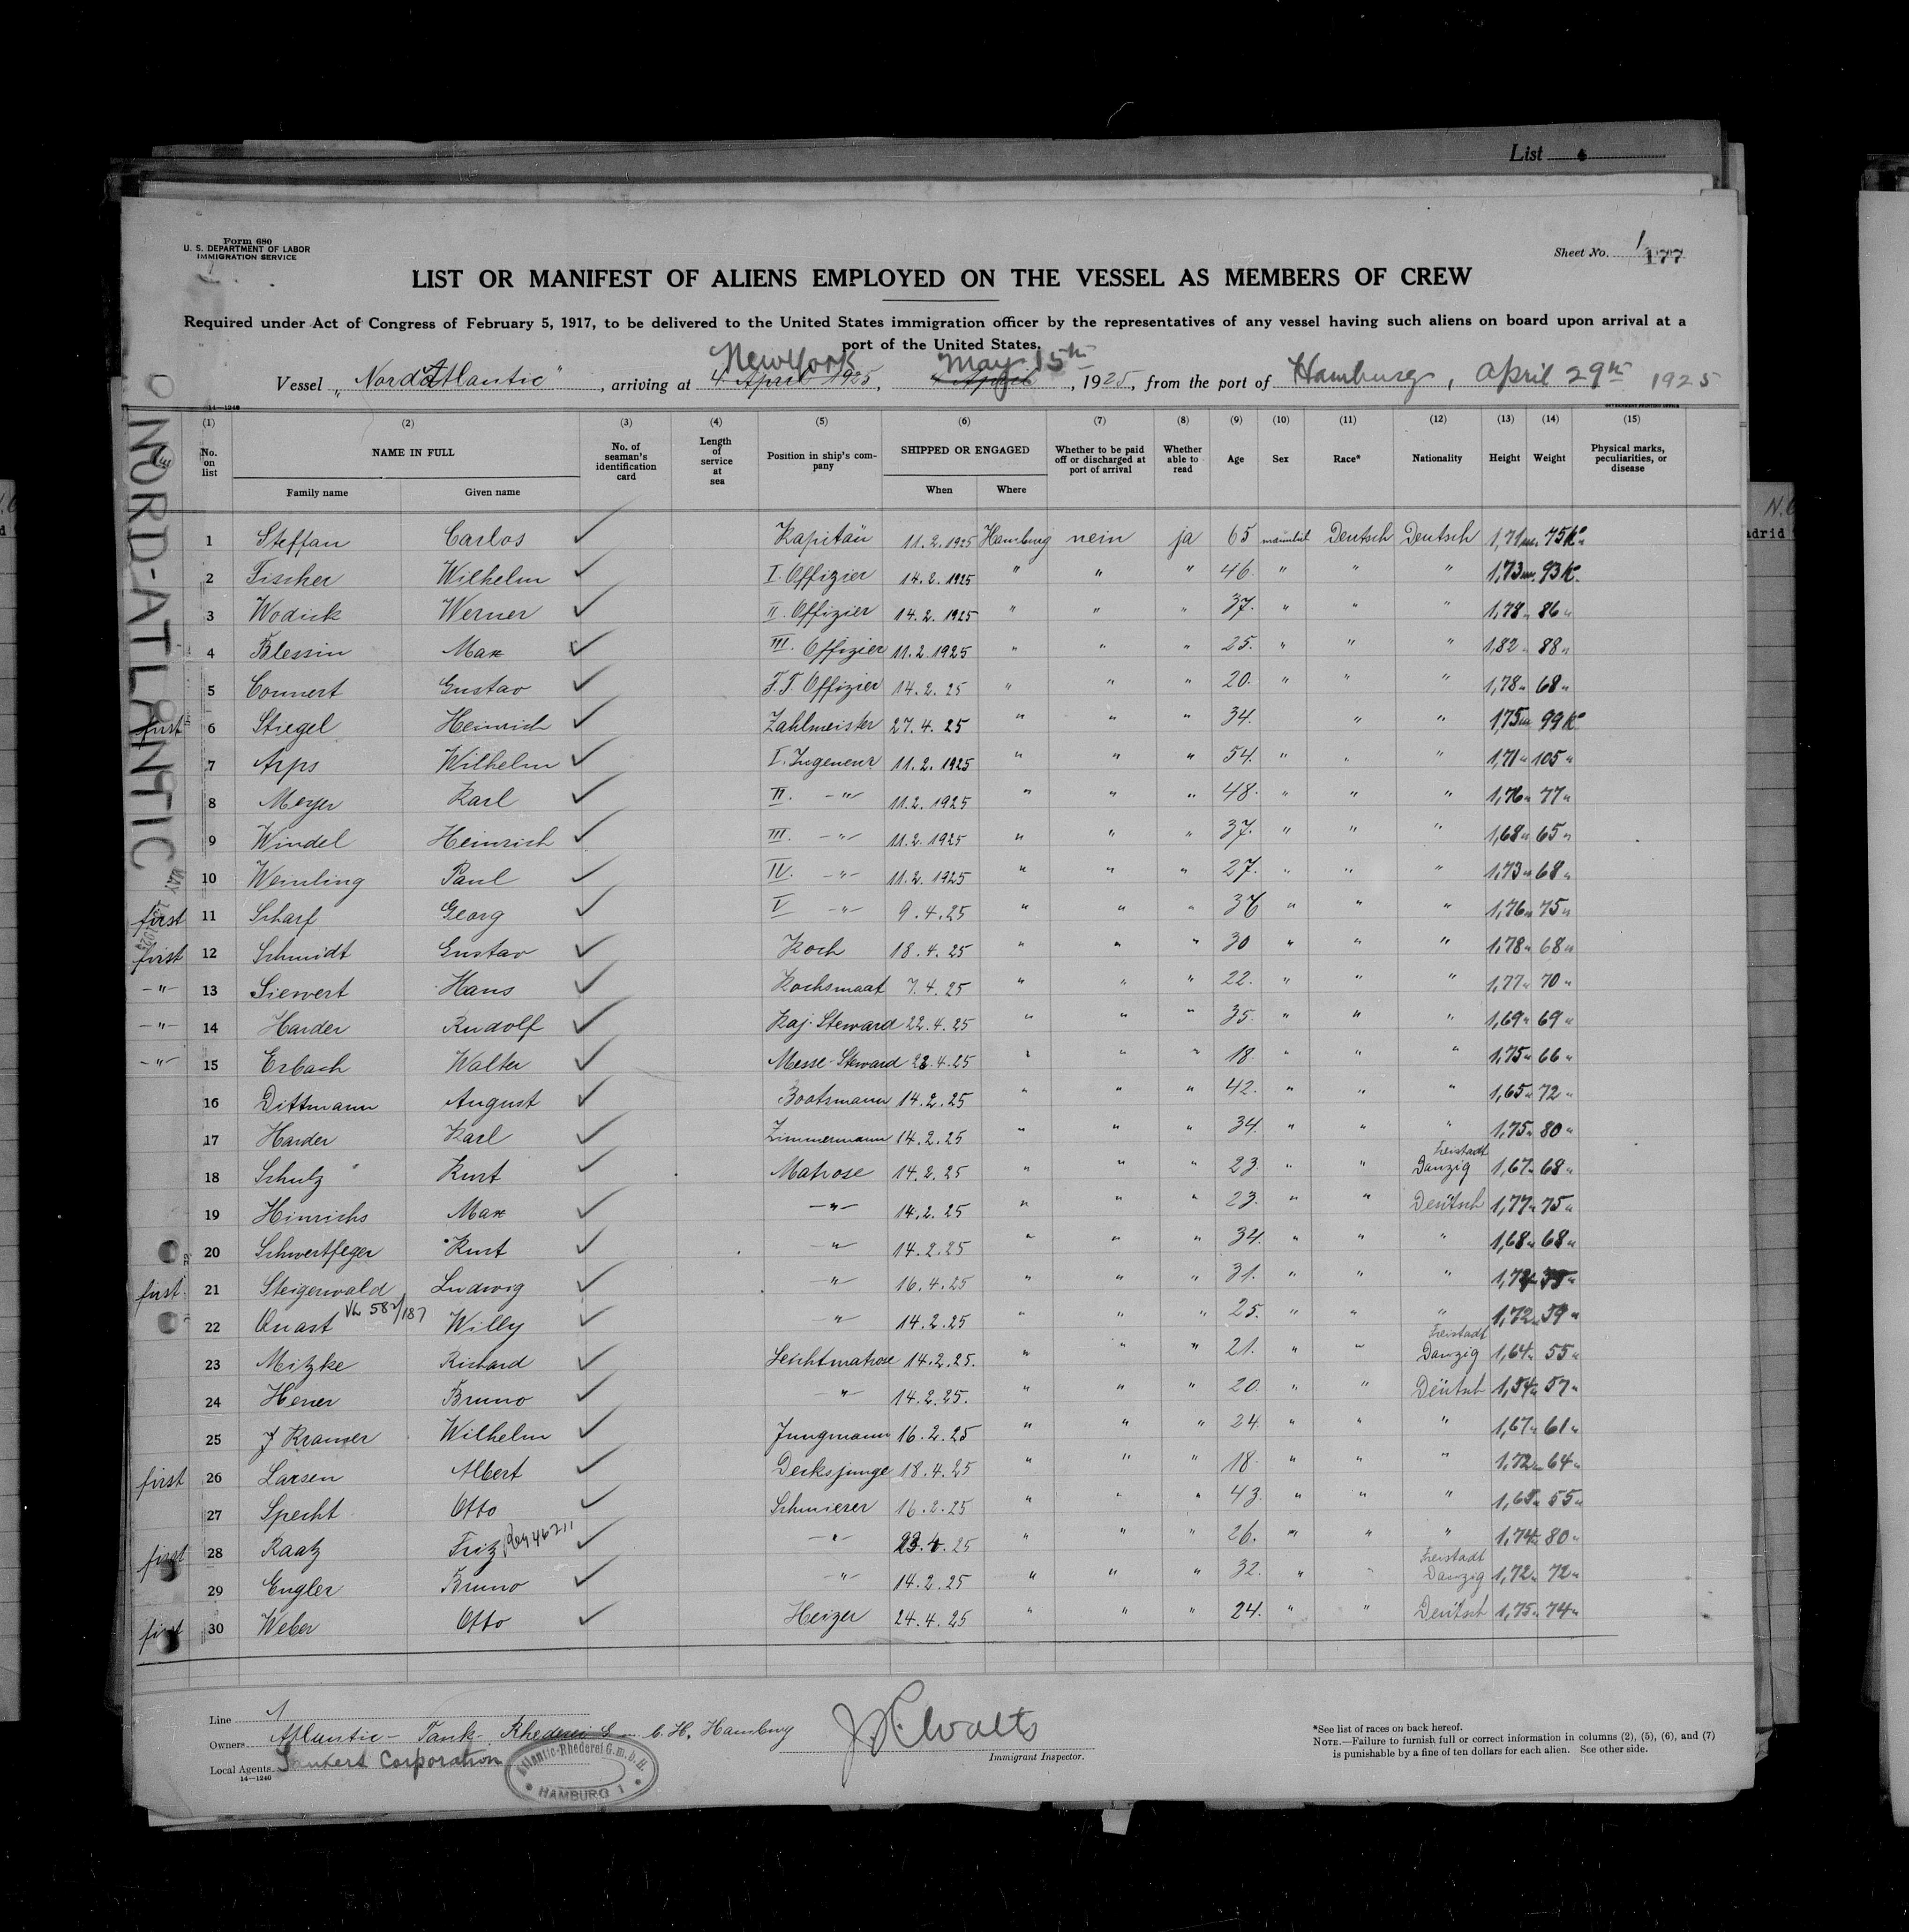 List
Form 680
U. S. DEPARTMENT OF LABOR
IMMIGRATION SERVICE
Sheet No. 1
177
LIST OR MANIFEST OF ALIENS EMPLOYED ON THE VESSEL AS MEMBERS OF CREW
Required under Act of Congress of February 5, 1917, to be delivered to the United States immigration officer by the representatives of any vessel having such aliens on board upon arrival at a
port of the United States.
New York May 15th
Vessel „Nord Atlantic", arriving at 4. April 1925, 4 April, 1925, from the port of Hamburg, April 29th 1925
14—1240
NORD-ATLANTIC
(1) (2) (3) (4) (5) (6) (7) (8) (9) (10) (11) (12) (13) (14) (15)
No. on list NAME IN FULL No. of seaman's identification card Length of service at sea Position in ship's company SHIPPED OR ENGAGED Whether to be paid off or discharged at port of arrival Whether able to read Age Sex Race* Nationality Height Weight Physical marks, peculiarities, or disease
Family name Given name When Where
1 Steffan Carlos ✓ Kapitän 11.2.1925 Hamburg nein ja 65 männlich Deutsch Deutsch 1,71 m. 75 K.
2 Fischer Wilhelm ✓ I. Offizier 14.2.1925 " " " 46. " " " 1,73 m. 93 K.
3 Wodick Werner ✓ II. Offizier 14.2.1925 " " " 37. " " " 1,78 " 86 "
4 Blessin Max ✓ III. Offizier 11.2.1925 " " " 25. " " " 1,82 " 88 "
5 Connert Gustav ✓ F.T. Offizier 14.2.25 " " " 20. " " " 1,78 " 68 "
first 6 Stiegel Heinrich ✓ Zahlmeister 27.4.25 " " " 34. " " 1,75 m 99 K.
7 Arps Wilhelm ✓ I. Ingeneur 11.2.1925 " " " 54. " " " 1,71 " 105 "
8 Meyer Karl ✓ II. -"- 11.2.1925 " " " 48. " " " 1,76 " 77 "
9 Windel Heinrich ✓ III. -"- 11.2.1925 " " " 37. " " " 1,68 " 65 "
10 Weinling Paul ✓ IV. -"- 11.2.1925 " " " 27. " " " 1,73 " 68 "
first 11 Scharf Georg ✓ V -"- 9.4.25 " " " 36 " " " 1,76 " 75 "
first 12 Schmidt Gustav ✓ Koch 18.4.25 " " " 30 " " " 1,78 " 68 "
-"- 13 Siewert Hans ✓ Kochsmaat 7.4.25 " " " 22. " " " 1,77 " 70 "
-"- 14 Harder Rudolf ✓ Kaj. Steward 22.4.25 " " " 35. " " " 1,69 " 69 "
-"- 15 Erbach Walter ✓ Messe-Steward 22.4.25 " " " 18. " " " 1,75 " 66 "
16 Dittmann August ✓ Bootsmann 14.2.25 " " " 42. " " " 1,65 " 72 "
17 Harder Karl ✓ Zimmermann 14.2.25 " " " 34. " " " 1,75 " 80 "
18 Schulz Kurt ✓ Matrose 14.2.25 " " " 23. " " Freistadt Danzig 1,67 " 68 "
19 Hinrichs Max ✓ -"- 14.2.25 " " " 23. " " Deutsch 1,77 " 75 "
20 Schwertfeger Kurt ✓ -"- 14.2.25 " " " 34. " " " 1,68 " 68 "
first 21 Steigerwald Ludwig ✓ -"- 16.4.25 " " " 31. " " "
22 Quast 582/187 Willy ✓ -"- 14.2.25 " " " 25. " " " 1,72 " 59 "
23 Mitzke Richard ✓ Leichtmatrose 14.2.25. " " " 21. " " Freistadt Danzig 1,64 " 55 "
24 Hener Bruno ✓ -"- 14.2.25. " " " 20. " " Deutsch 1,54 " 57 "
25 J Kramer Wilhelm ✓ Jungmann 16.2.25 " " " 24. " " " 1,67 " 61 "
first 26 Larsen Albert ✓ Decksjunge 18.4.25 " " " 18. " " " 1,72 " 64 "
27 Specht Otto ✓ Schmierer 16.2.25 " " " 43. " " " 1,68 " 55 "
first 28 Raatz Fritz ✓ -"- 23.4.25 " " " 26. " " " 1,74 " 80 "
29 Engler Bruno ✓ -"- 14.2.25 " " " 32. " " Freistadt Danzig 1,72 " 72 "
first 30 Weber Otto ✓ Heizer 24.4.25 " " " 24. " " Deutsch 1,75 " 74 "
Line
Owners Atlantic- Tank- Rhederei G. m. b. H. Hamburg
Local Agents Corporation
14—1240
Atlantic-Rhederei G.m.b.H.
HAMBURG 1
Immigrant Inspector.
*See list of races on back hereof.
NOTE.—Failure to furnish full or correct information in columns (2), (5), (6), and (7)
is punishable by a fine of ten dollars for each alien. See other side.